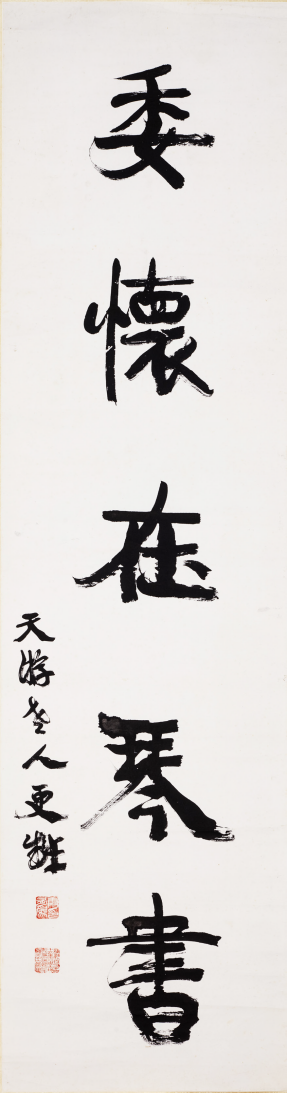 委懷在琴書
天游老人更甡